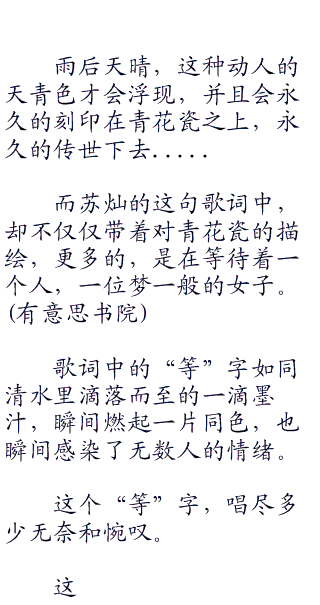 雨后天晴，这种动人的
天青色才会浮现，并且会永
久的刻印在青花瓷之上，永
久的传世下去.....
而苏灿的这句歌词中，
却不仅仅带着对青花瓷的描
绘，更多的，是在等待着一
个人，一位梦一般的女子。
(有意思书院)
歌词中的“等”字如同
清水里滴落而至的一滴墨
汁，瞬间燃起一片同色，也
瞬间感染了无数人的情绪。
这个“等”字，唱尽多
少无奈和惋叹。
这